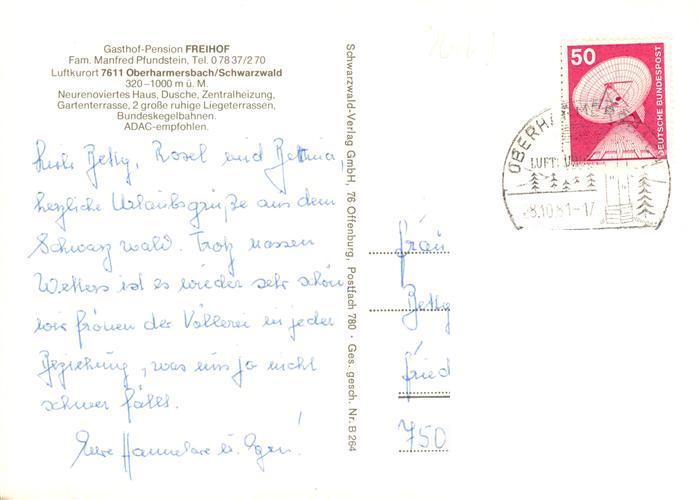 Gasthof-Pension FREIHOF
Fam. Manfred Pfundstein, Tel. 0 78 37/2 70
Luftkurort 7611 Oberharmersbach/Schwarzwald
320–1000 m ü. M.
Neurenoviertes Haus, Dusche, Zentralheizung,
Gartenterrasse, 2 große ruhige Liegeterrassen,
Bundeskegelbahnen.
ADAC-empfohlen.
Betty, Rosel und Bettina,
herzliche Urlaubsgrüße aus dem
Schwarzwald. Trotz nassen
Wetters ist es wieder sehr schön
wir frönen der Völlerei in jeder
Beziehung, was uns ja nicht
schwer fällt.
Eure Hannelore u. Egon!
Schwarzwald-Verlag GmbH, 76 Offenburg, Postfach 780 · Ges. gesch. Nr. B 264
50
DEUTSCHE BUNDESPOST
OBERHARMERSBACH
LUFT
8.10.81-17
Frau
Betty
Fried
750